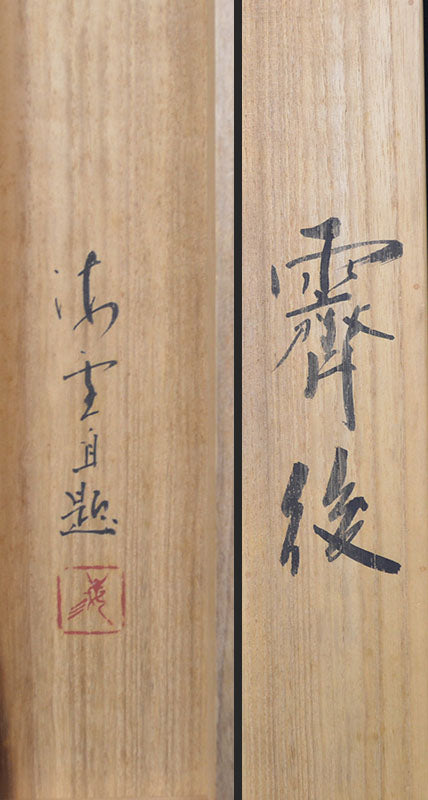 霽後
海雲自題